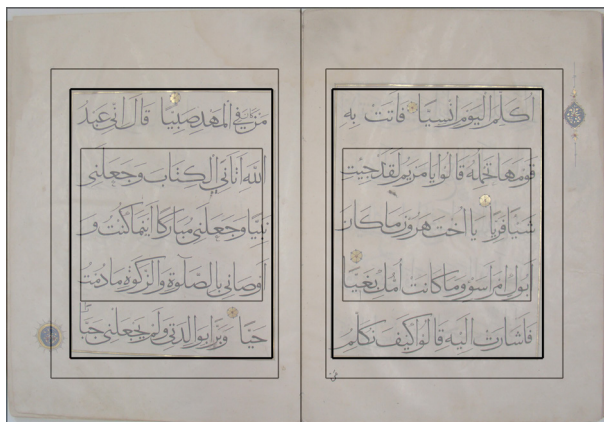 اكلم اليوم انسيا فاتت به
قومها تحمله قالوا يا مريم لقد جيت
شيئا فريا يا اخت هرون ما كان
ابوك امرا سوء وما كانت امك بغيا
فاشارت اليه قالوا كيف نكلم
من كان في المهد صبيا قال اني عبد
الله آتاني الكتاب وجعلني
نبيا وجعلني مباركا اينما كنت و
اوصاني بالصلوة والزكوة ما دمت
حيا وبرا بوالدتي ولم يجعلني جبا